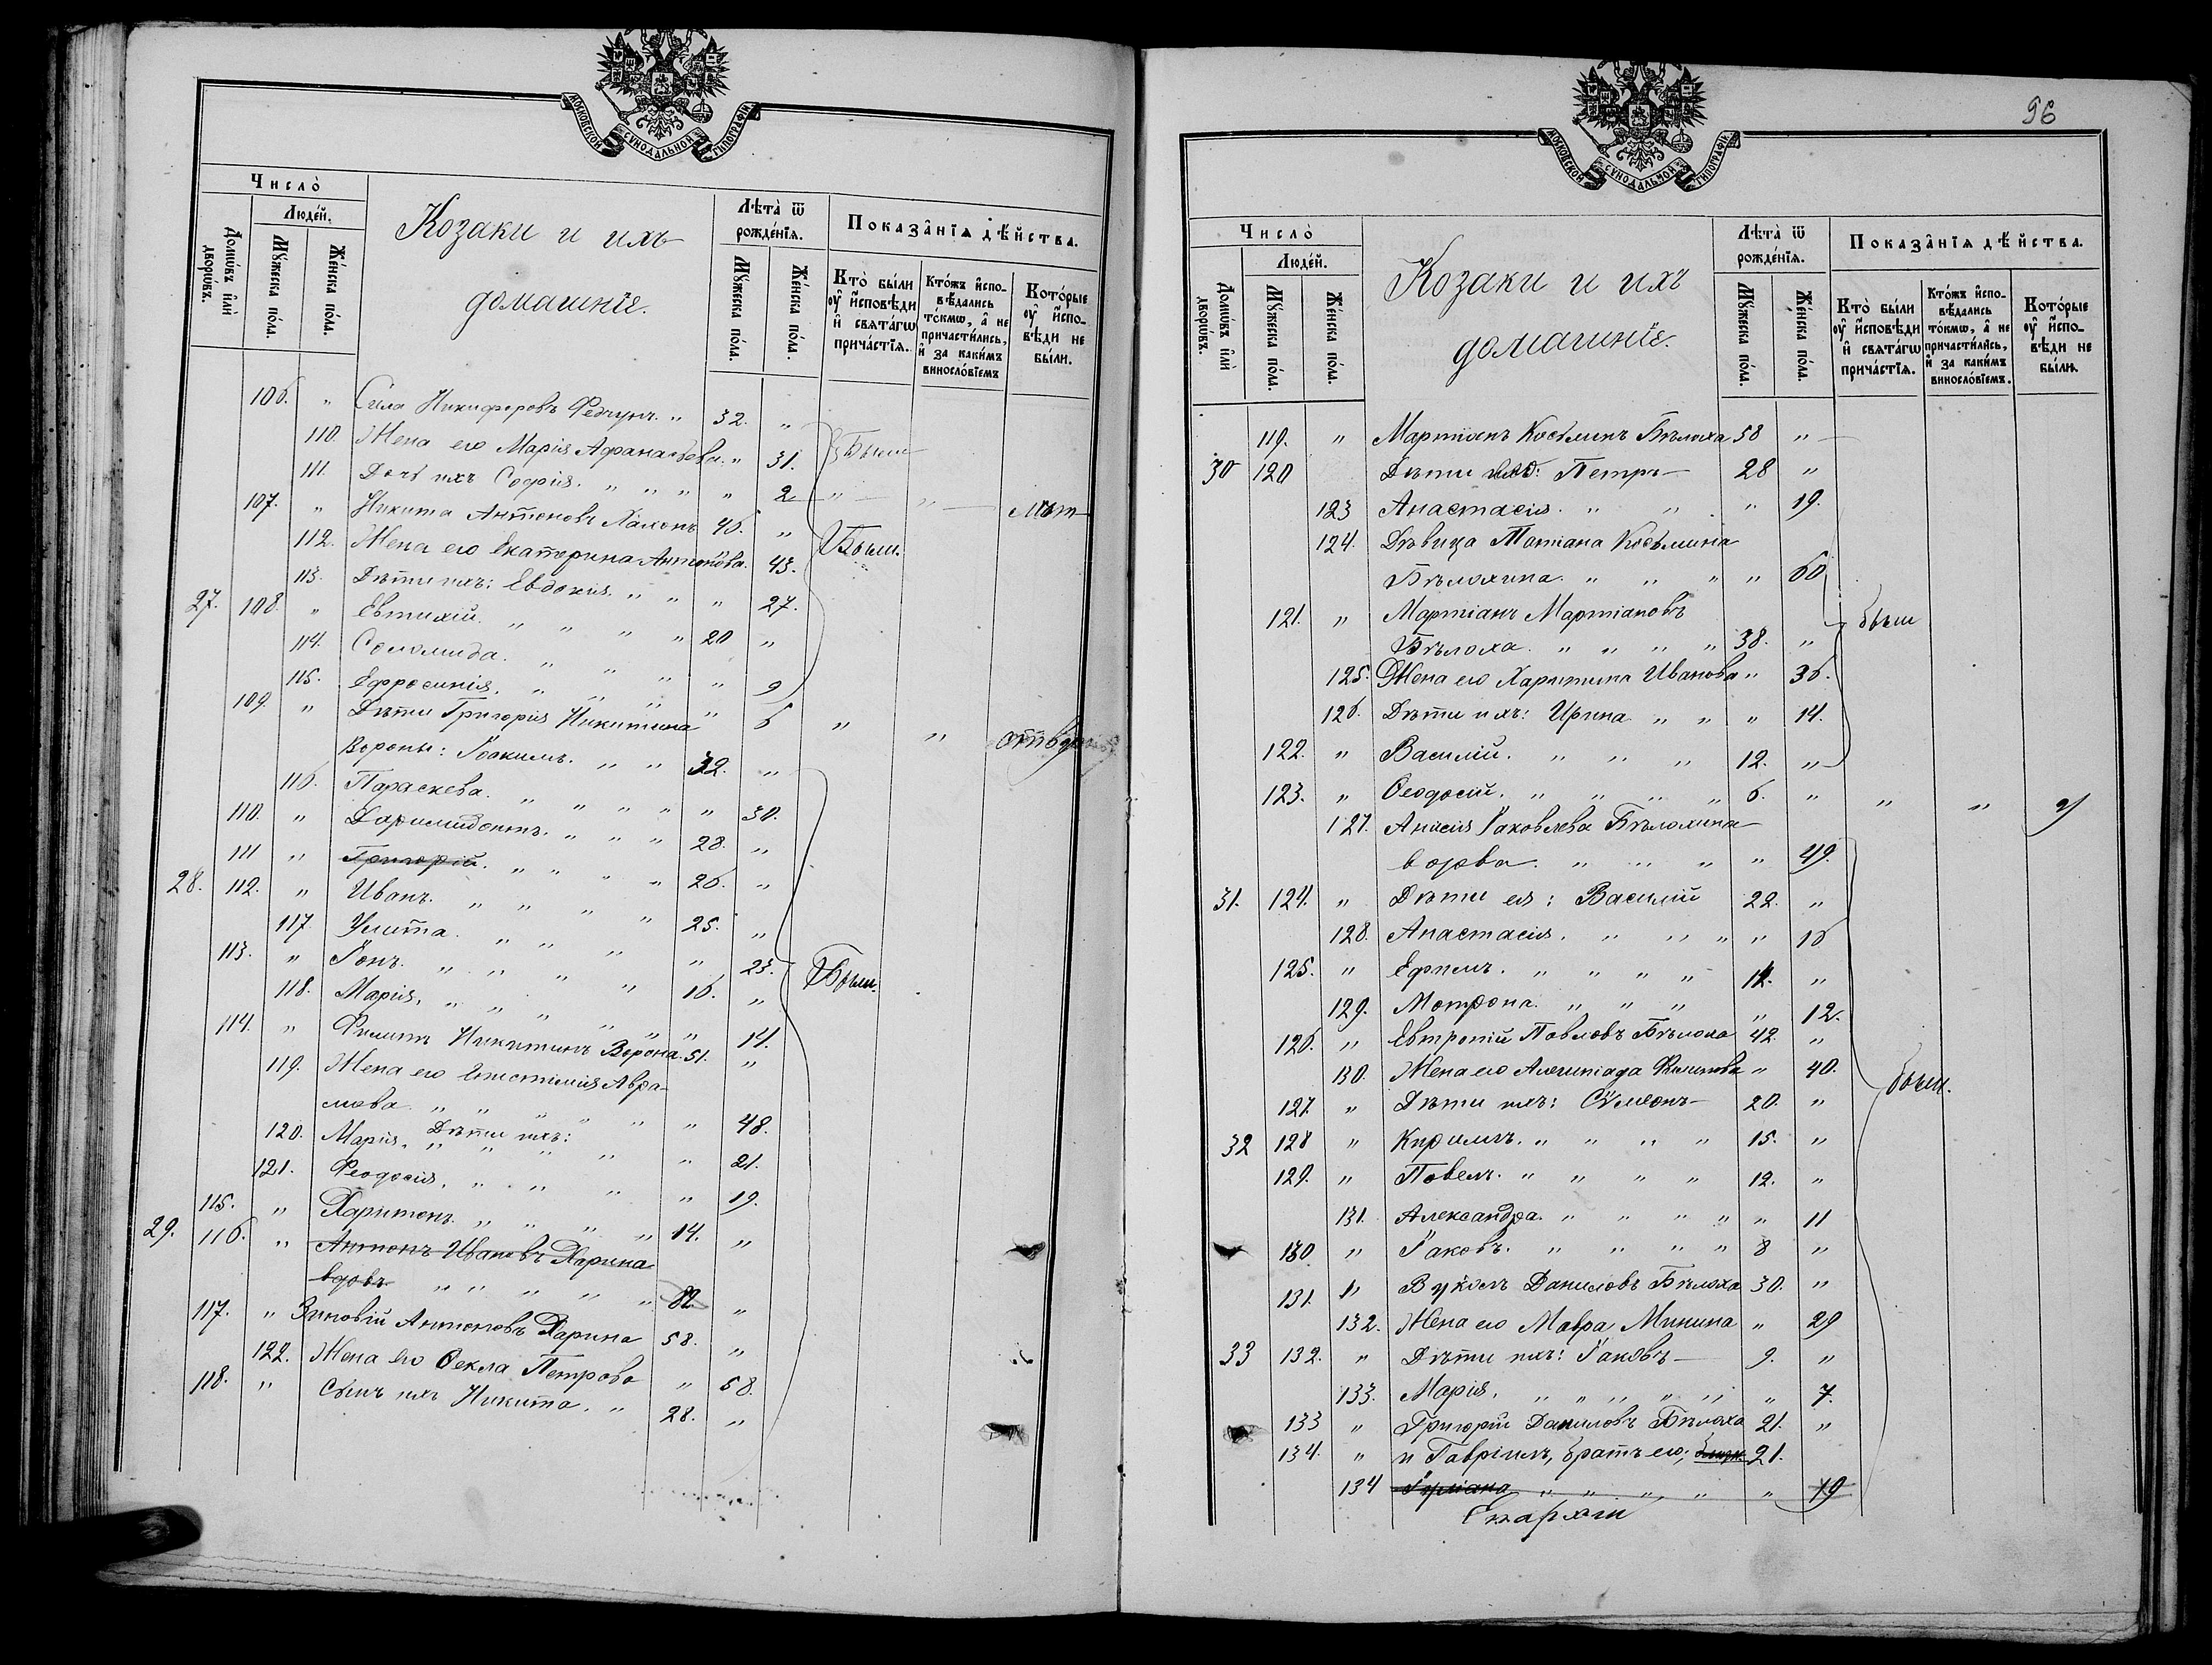 МОСКОВСКОЙ СѴНОДАЛЬНОЙ ТИПОГРАФІИ
Число̀
Людéй.
Домѡ́въ и҆лѝ дворѡ́въ.
Мꙋ́жеска по́ла.
Же́нска по́ла.
Козаки и ихъ
домашніе.
Лѣта̀ ѿ рожде́нїѧ.
Мꙋ́жеска по́ла.
Же́нска по́ла.
Показа̂нїѧ дѣ́йства.
Кто̀ бы́ли ᲂу҆ и҆сповѣ́ди и҆ свѧта́гѡ прича́стїѧ.
Кто́жъ и҆спо-вѣ́дались то́кмѡ, а҆ не причасти́лись, и҆ за каки́мъ винословїемъ
Кото́рые ᲂу҆ и҆спо-вѣ́ди не бы́ли.
106. " Сила Никифоровъ " 32. "
110. Жена его Марія Афанасьева. " 31. Были
111. Дочь ихъ Софія. " " " " 2. " " лѣт
107. " Никита Антоновъ 46. "
112. Жена его Екатерина Антонова. 43. Были.
113. Дѣти ихъ: Евдокія. " " " 27.
27. 108. " Евтихій. " " " " 20 "
114. Соломида. " " " " 9
115. Ефросинія. " " " " 6 " "
109. " Дѣти Григорія Никитина
Вороны: Іоакимъ. " " 32. "
116. Параскева. " " " " " 30.
110. " Доримидонтъ. " " " 28. "
111 " Григорій. " " " " 26. "
28. 112. " Иванъ. " " " " 25. "
117. Улита. " " " " 23.
113. " Іонъ. " " " " 16. " Были.
118. Марія. " " " " " " 14.
114. " Филиппъ Никитинъ Ворона. 51. "
119. Жена его Епистимія Авра-
мова. " " " " " " 48.
Дѣти ихъ:
120. Марія. " " " " " 21.
121. Феодосія. " " " " 19.
115. " Харитонъ. " " " " 14. "
29. 116. " Антонъ Ивановъ Харина
вдовъ " " " " " 82. "
117. " Зиновій Антоновъ Харина 58. "
122. Жена его Ѳекла Петрова " 58.
118. " Сынъ ихъ Никита. " 28. "
96
МОСКОВСКОЙ СѴНОДАЛЬНОЙ ТИПОГРАФІИ
Число̀
Людéй.
Домѡ́въ и҆лѝ дворѡ́въ.
Мꙋ́жеска по́ла.
Же́нска по́ла.
Козаки и ихъ
домашніе.
Лѣта̀ ѿ рожде́нїѧ.
Мꙋ́жеска по́ла.
Же́нска по́ла.
Показа̂нїѧ дѣ́йства.
Кто̀ бы́ли ᲂу҆ и҆сповѣ́ди и҆ свѧта́гѡ прича́стїѧ.
Кто́жъ и҆спо-вѣ́дались то́кмѡ, а҆ не причасти́лись, и҆ за каки́мъ винословїемъ.
Кото́рые ᲂу҆ и҆спо-вѣ́ди не бы́ли.
119. " Мартіанъ Косьминъ Бѣлоха 58 "
30 120 Дѣти Петръ 28 "
123 Анастасія. " " " 19.
124. Дѣвица Татіана Косьмина
Бѣлохина. " " " " 60
121. " Мартіанъ Мартіановъ были
Бѣлоха. " " " " 38. "
125. Жена его Харитина Иванова " 36.
126. Дѣти ихъ: Ирина " " " 14.
122. " Василій. " " " 12. "
123. " Ѳеодосій. " " " " 6. " " "
127. Анисія Іаковлева Бѣлохина
вдова. " " " " 49.
31. 124. " Дѣти ея: Василій 22. "
128. Анастасія. " " " " 16
125. " Ефимъ. " " " " 14. "
129. Мотрона. " " " " 12.
126. " Евтропій Павловъ Бѣлоха 42. "
130. Жена его Филипова " 40. были.
127. " Дѣти ихъ: Сѵмеонъ 20. "
32 128 " Кириллъ. " " " " 15. "
129. " Павелъ. " " " " 12. "
131. Александра. " " " " " 11
130. " Іаковъ. " " " " 8 "
131. " Вуколъ Даниловъ Бѣлоха 30. "
132. Жена его Мавра Минина " 29
33 132. " Дѣти ихъ: Іаковъ 9. "
133. Марія. " " " " " " 7.
133 " Григорій Даниловъ Бѣлоха 21. "
134. " и Гавріилъ, братъ его; близн. 21.
134 " " " " " 19
Епархіи